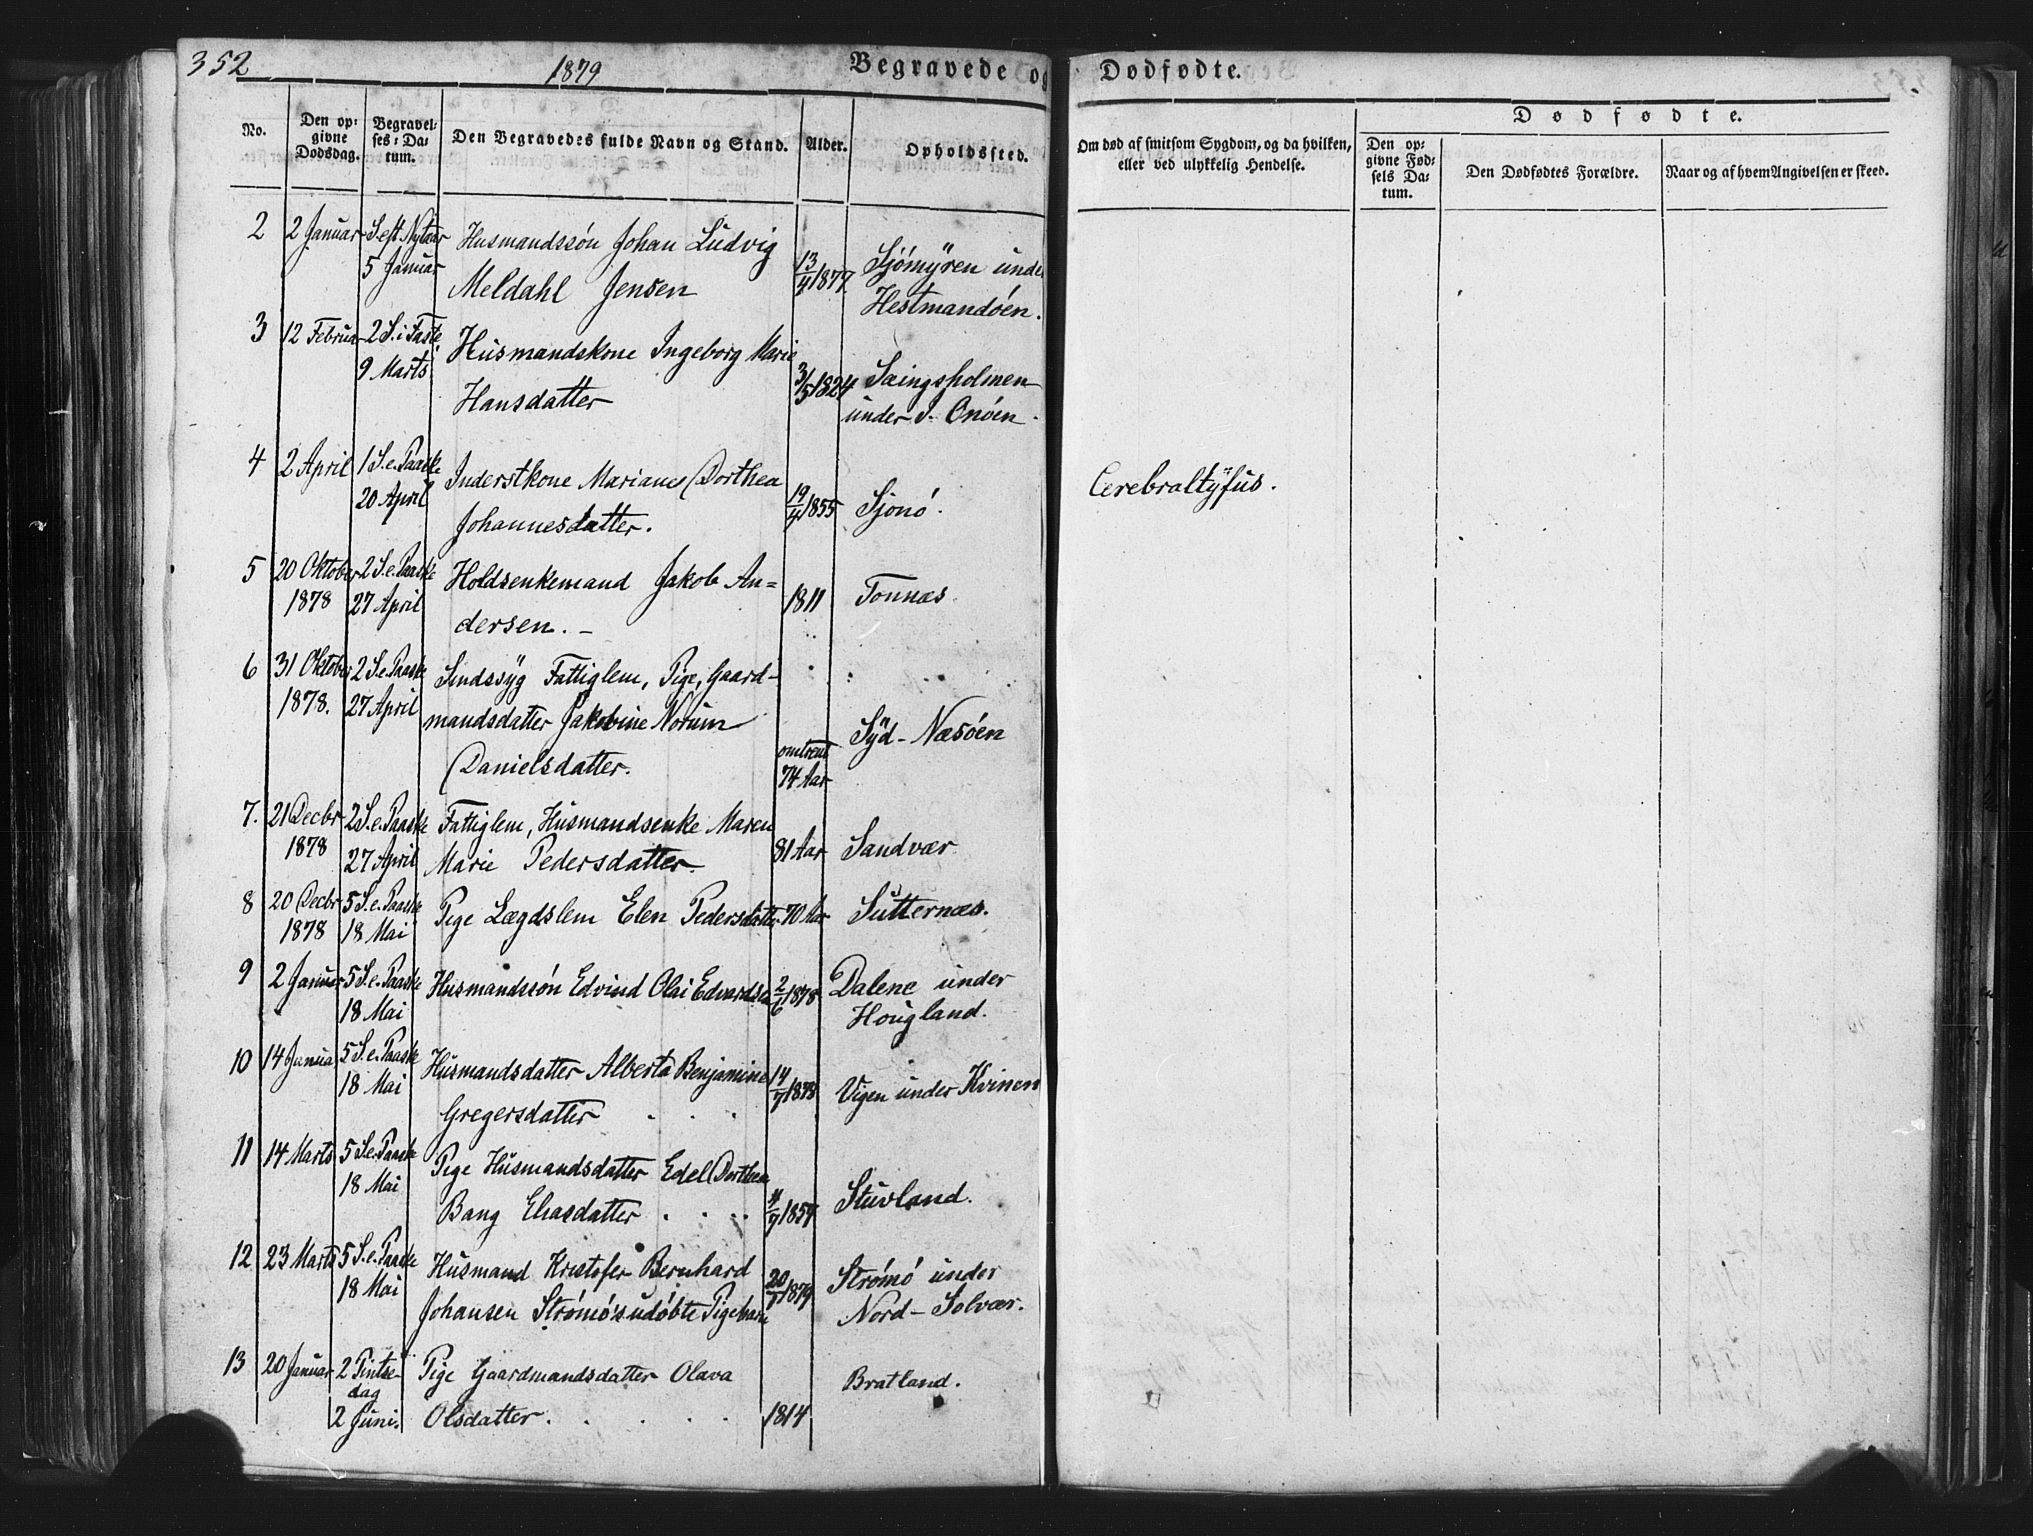 352 1879 Begravede og Dødfødte.
No. Den opgivne Dødsdag. Begravelses-Datum. Den Begravedes fulde Navn og Stand. Alder. Opholdssted. Om død af smitsom Sygdom, og da hvilken, eller ved ulykkelig Hendelse. Dødfødte.
Den opgivne Fødsels Datum. Den Dødfødtes Forældre. Naar og af hvem Angivelsen er skeed.
2 2 Januar S. eft. Nytaar Husmandssøn Johan Ludvig
5 Januar Meldahl Jensen 13/4 1877 Sjømyren under
Hestmandøen.
3 12 Februar 2 S. i Faste Husmandskone Ingeborg Marie
9 Marts Hansdatter 3/5 1824 Sæingsholmen
under S. Onøen.
4 2 April 1 S. e. Paaske Inderstkone Marianes Dorthea
20 April Johannesdatter. 19/4 1855 Sjonø. Cerebraltyfus.
5 20 Oktober 2 S. e. Paaske Holdsenkemand Jakob An=
1878 27 April dersen. 1811 Tonnæs
6 31 Oktober 2 S. e. Paaske Sindssyg Fattiglem, Pige, Gaard-
1878. 27 April mandsdatter Jakobine Norum
Danielsdatter. omtrent 74 Aar Syd-Næsøen
7. 21 Decbr 2 S. e. Paaske Fattiglem, Husmandsenke Maren
1878 27 April Marie Pedersdatter. 81 Aar Sandvær
8 20 Decbr 5 S. e. Paaske Pige Lægdslem Elen Pedersdatter 70 Aar Sutternæs.
1878 18 Mai
9 2 Januar 5 S. e. Paaske Husmandssøn Edvind Olai Edvardsen 2/6 1878 Dalene under
18 Mai Hougland.
10 14 Januar 5 S. e. Paaske Husmandsdatter Alberta Benjamine
18 Mai Gregersdatter 14/7 1878 Vigen under Kvinen
11 14 Marts 5 S. e. Paaske Pige Husmandsdatter Edel Dorthea
18 Mai Bang Eliasdatter 1857 Stuvland.
12 23 Marts 5 S. e. Paaske Husmand Kristofer Bernhard
18 Mai Johansen Strømø's udøbte Pigebarn 1879 Strømø under
Nord-Solvær.
13 20 Januar 2 Pintse- Pige Gaardmandsdatter Olava Bratland.
dag
2 Juni. Olsdatter 1814